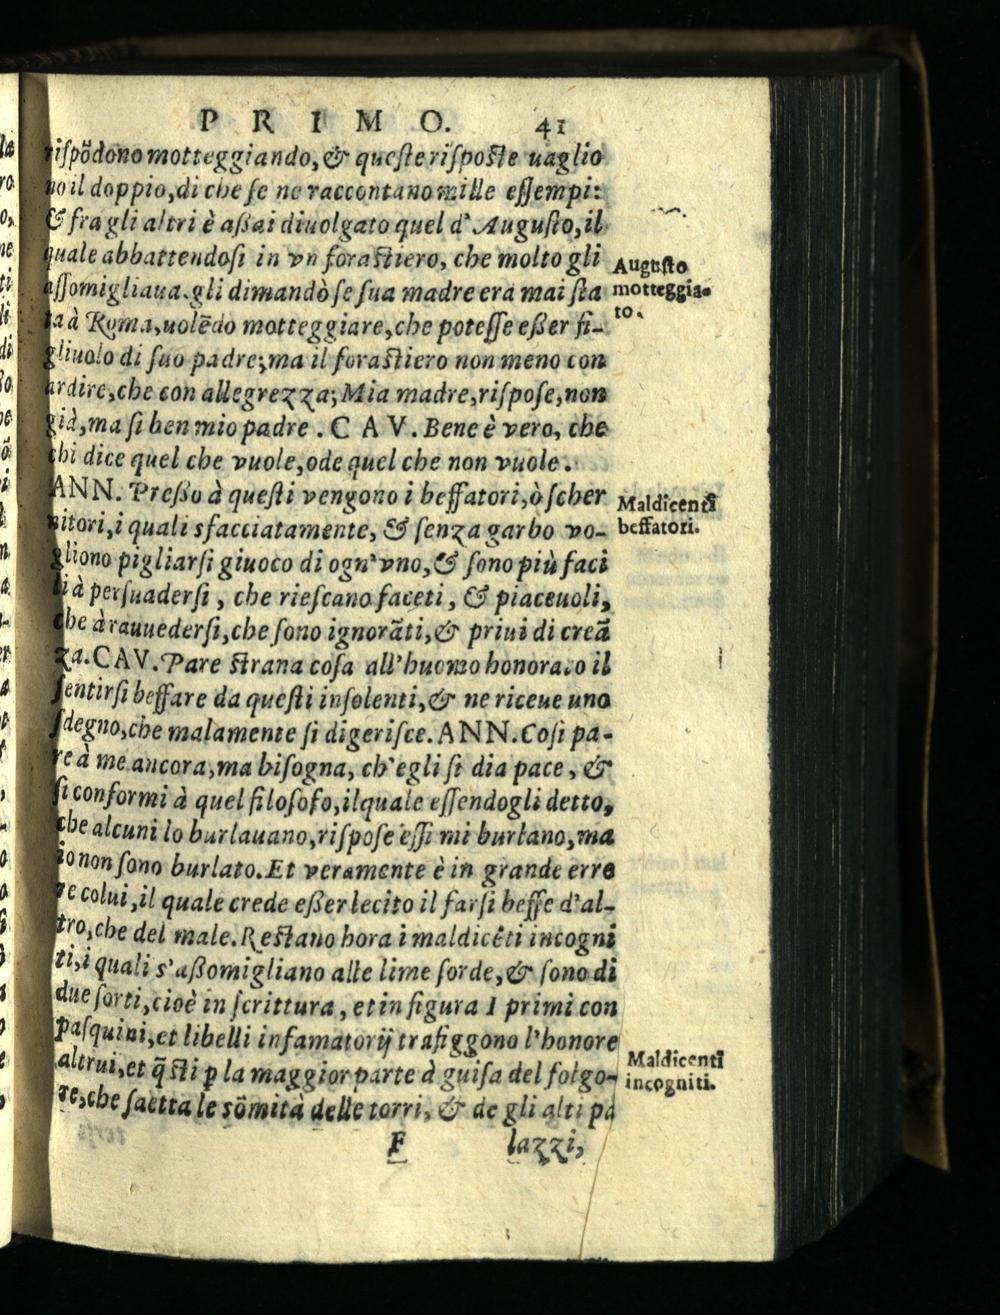 PRIMO. 41
riſpõdono motteggiando, & queſte riſpoſte uaglio
no il doppio, di che ſe ne raccontano mille eſſempi:
& fra gli altri è aßai diuolgato quel d' Auguſto, il
quale abbattendoſi in vn foraſtiero, che molto gli
aſſomigliaua. gli dimandò ſe ſua madre era mai ſta
ta à Roma, uolẽdo motteggiare, che poteſſe eßer fi-
gliuolo di ſuo padre; ma il foraſtiero non meno con
ardire, che con allegrezza; Mia madre, riſpoſe, non
già, ma ſi ben mio padre. CAV. Bene è vero, che
chi dice quel che vuole, ode quel che non vuole.
ANN. Preßo à queſti vengono i beffatori, ò ſcher
nitori, i quali sfacciatamente, & ſenza garbo vo-
gliono pigliarſi giuoco di ogn'vno, & ſono più faci
li à perſuaderſi, che rieſcano faceti, & piaceuoli,
che à rauuederſi, che ſono ignorãti, & priui di creã
za. CAV. Pare ſtrana coſa all'huomo honorato il
ſentirſi beffare da queſti inſolenti, & ne riceue uno
ſdegno, che malamente ſi digeriſce. ANN. Coſi pa-
re à me ancora, ma biſogna, ch'egli ſi dia pace, &
ſi conformi à quel filoſofo, ilquale eſſendogli detto,
che alcuni lo burlauano, riſpoſe eſſi mi burlano, ma
io non ſono burlato. Et veramente è in grande erro
re colui, il quale crede eßer lecito il farſi beffe d'al-
tro, che del male. Reſtano hora i maldicẽti incogni
ti, i quali s'aßomigliano alle lime ſorde, & ſono di
due ſorti, cioè in ſcrittura, et in figura I primi con
Paſquini, et libelli infamatorij trafiggono l'honore
altrui, et q̃ſti ꝑ la maggior parte à guiſa del folgo-
re, che ſaetta le sõmità delle torri, & de gli alti pa
F lazzi,
Auguſto
motteggia-
to.
Maldicenti
beffatori.
Maldicenti
incogniti.